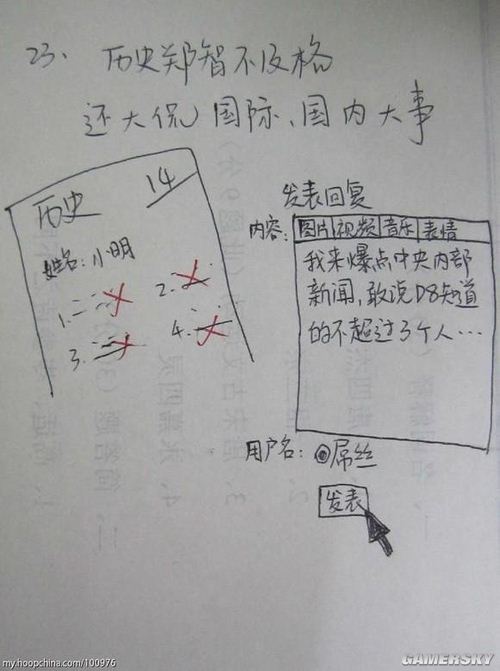 23、历史郑智不及格
还大侃国际、国内大事
历史 14
姓名：小明
1.
2.
3.
4.
发表回复
内容：图片 视频 音乐 表情
我来爆点中央内部
新闻，敢说D8知道
的不超过3个人…
用户名：@屌丝
发表
my.hoopchina.com/100976
GAMERSKY